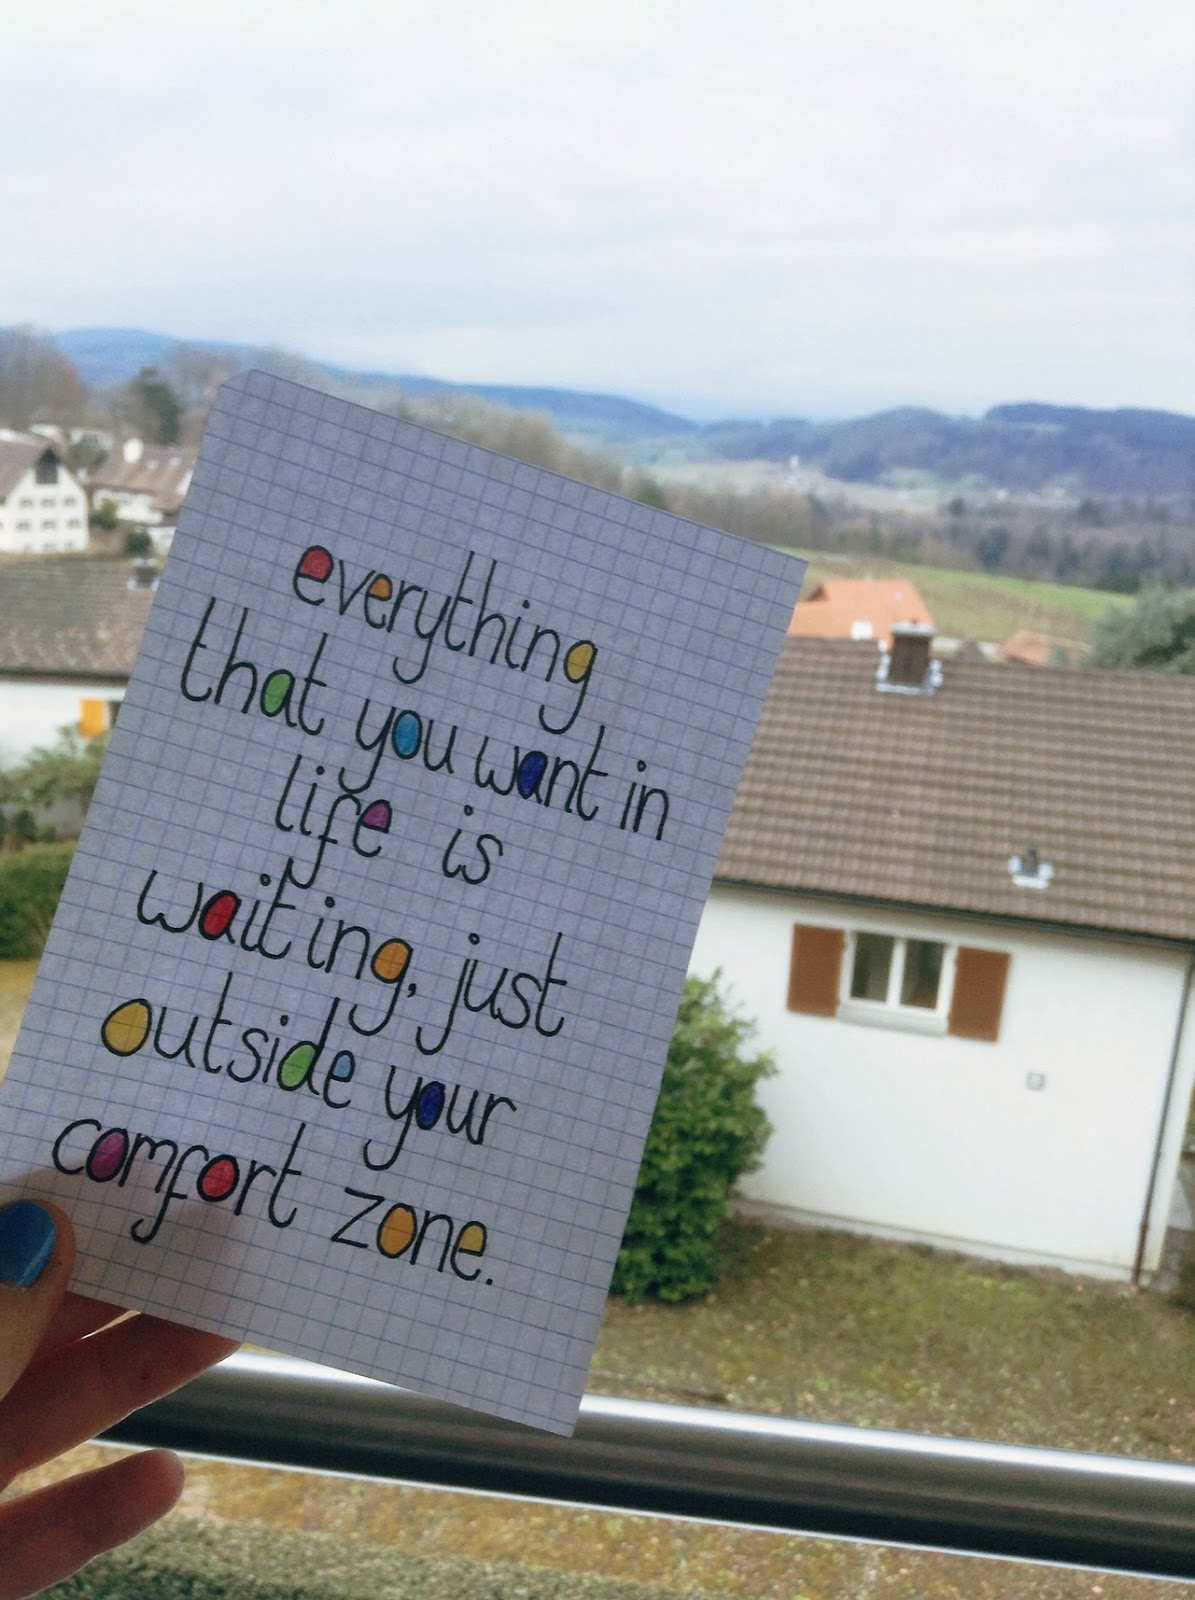 everything
that you want in
life is
waiting, just
outside your
comfort zone.